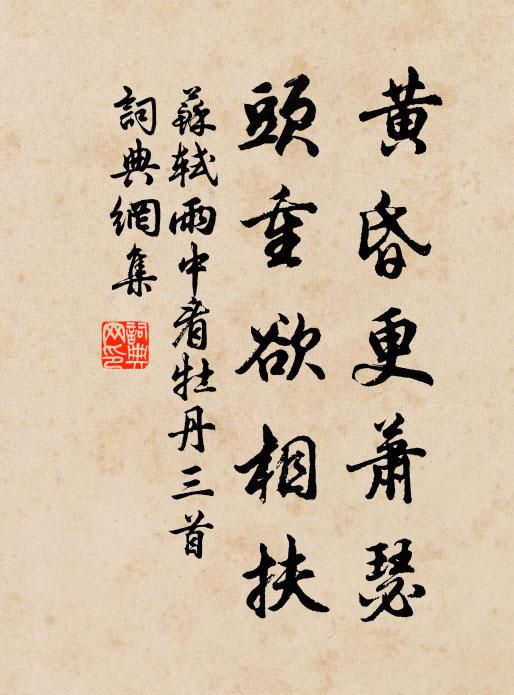 黃昏更蕭瑟
頭重欲相扶
蘇軾雨中看牡丹三首
詞典網集
詞典網印